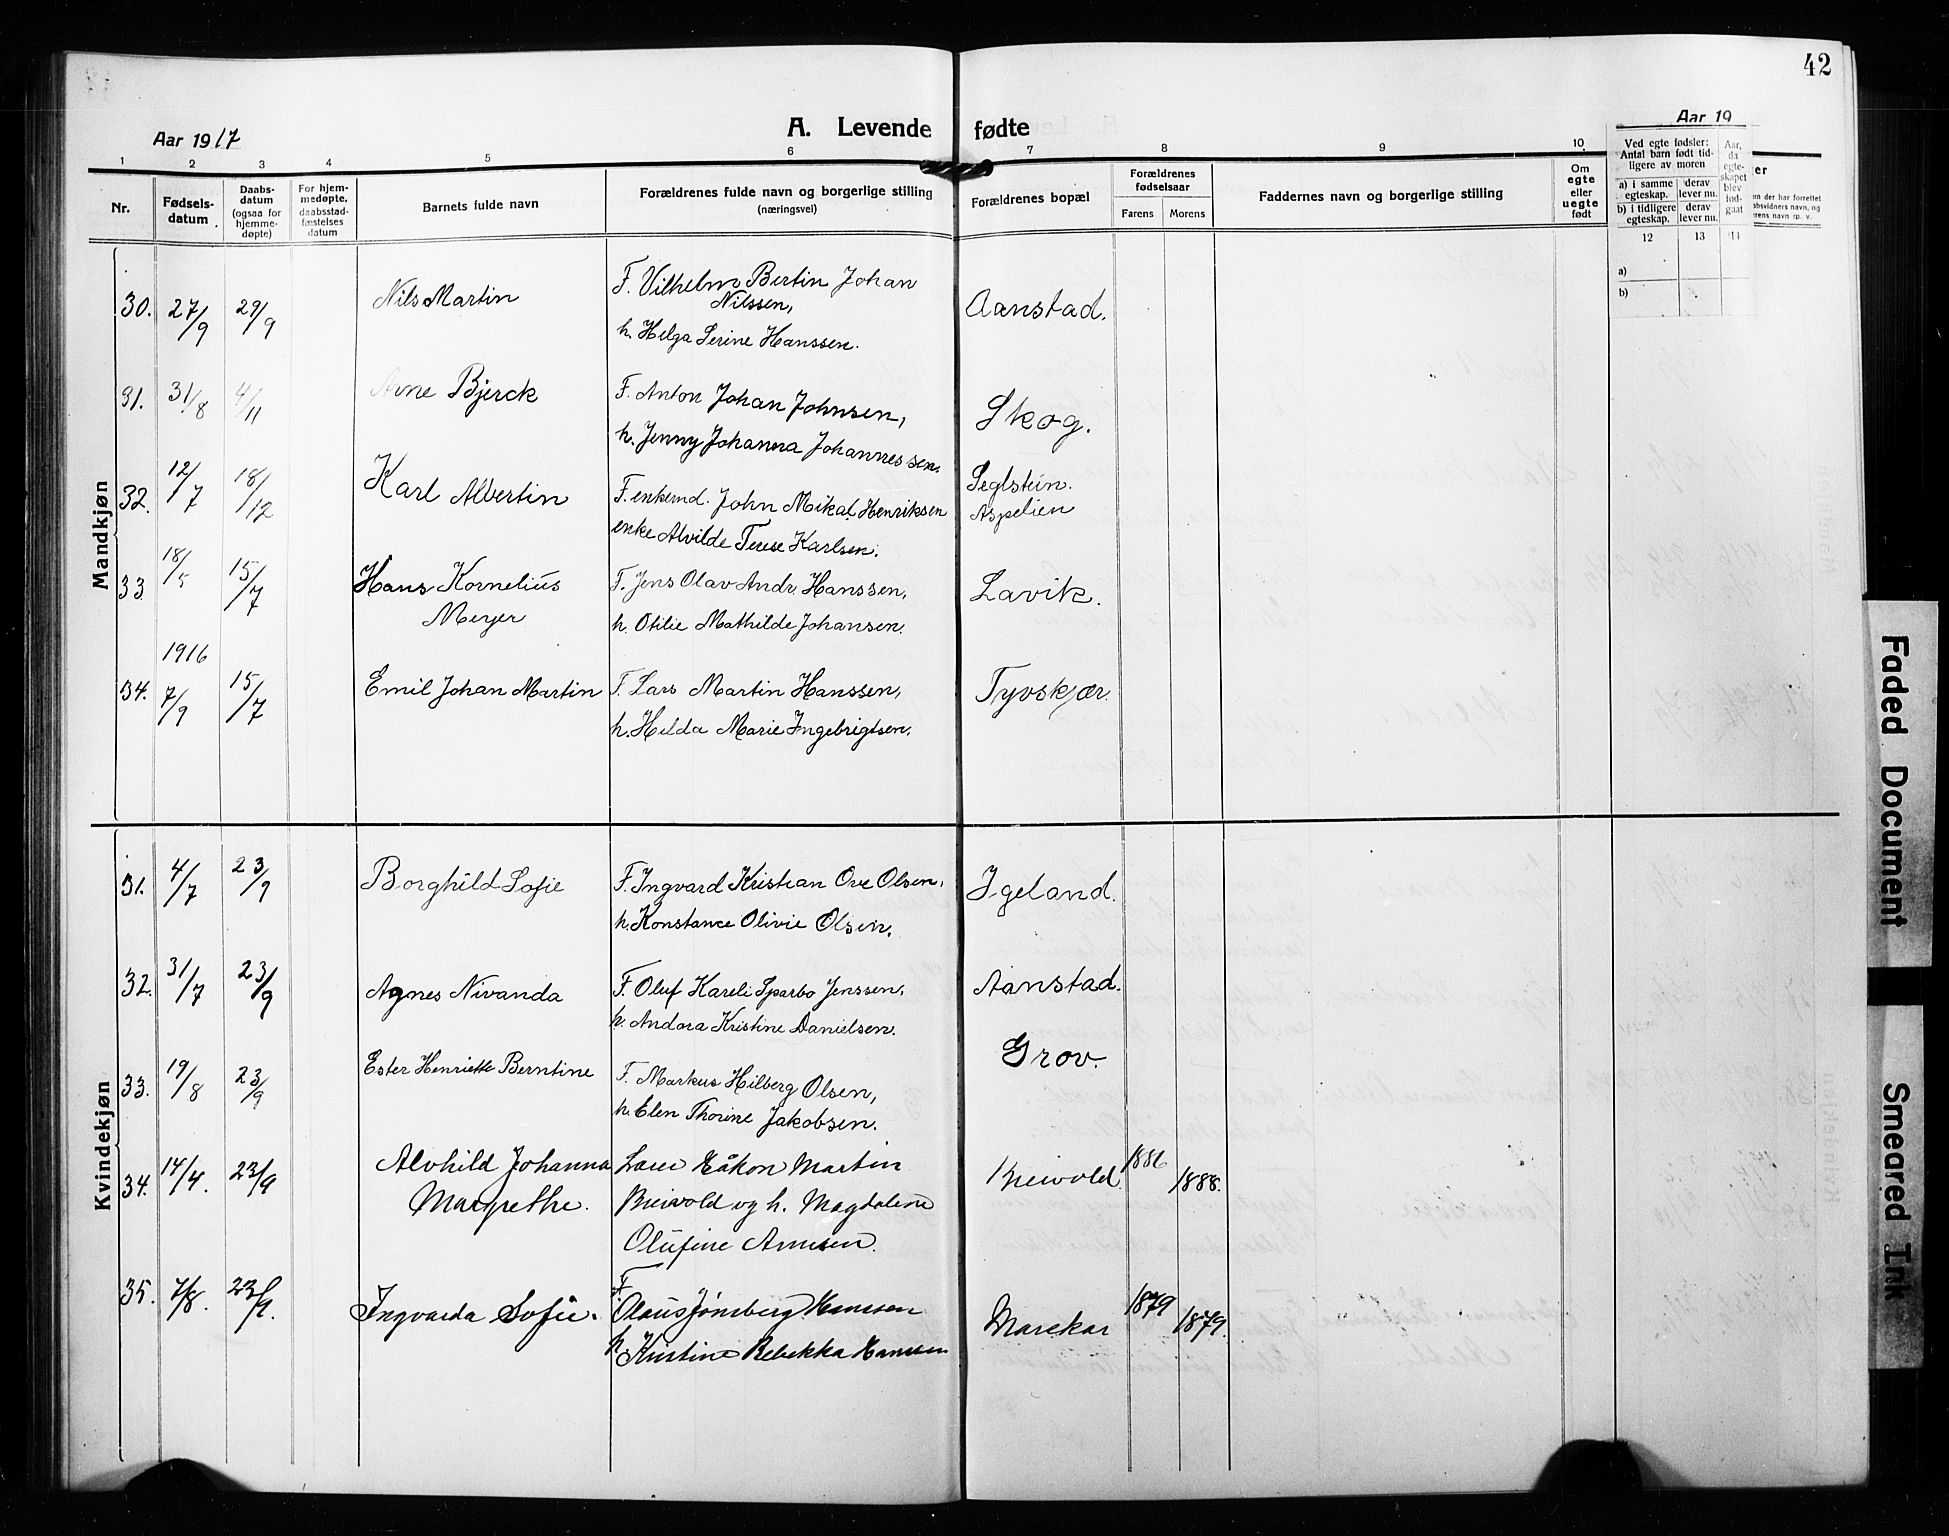 42
Aar 1917
A. Levende fødte
Aar 19
1 2 3 4 5 6 7 8 9 10
Nr.
Fødsels-
datum
Daabs-
datum
(ogsaa for
hjemme-
døpte)
For hjem-
medøpte,
daabsstad-
fæstelses
datum
Barnets fulde navn
Forældrenes fulde navn og borgerlige stilling
(næringsvei)
Forældrenes bopæl
Forældrenes
fødselsaar
Farens Morens
Faddernes navn og borgerlige stilling
Om
egte
eller
uegte
født
Ved egte fødsler:
Antal barn født tid-
ligere av moren
a) i samme
egteskap.
derav
lever nu.
b) i tidligere
egteskap.
derav
lever nu.
Aar,
da
egte-
skapet
blev
ind-
gaat
12 13 14
a)
b)
Mandkjøn
30. 27/9 29/9 Nils Martin
F. Vilhelm Bertin Johan
Nilssen,
h. Helga Serine Hanssen.
Aanstad.
31. 31/8 4/11 Arne Bjerck
F. Anton Johan Johnsen,
h. Jenny Johanna Johannessen.
Skog.
32. 12/7 18/12 Karl Albertin
F. enkemd. John Mikal Henriksen
enke Alvilde Terese Karlsen.
Seglstein.
Aspelien
33 18/5 15/7 Hans Kornelius
Meyer
F. Jens Olav Andr. Hanssen,
h. Otilie Mathilde Johansen.
Lavik.
1916
34. 7/9 15/7 Emil Johan Martin
F. Lars Martin Hanssen,
h. Hilda Marie Ingebrigtsen.
Tyvskjær.
Kvindekjøn
31. 4/7 23/9 Borghild Sofie
F. Ingvard Kristian Ove Olsen,
h. Konstance Olivie Olsen.
Igeland.
32. 31/7 23/9 Agnes Nivanda
F. Oluf Kareli Sparbo Jenssen,
h. Andora Kristine Danielsen.
Aanstad.
33. 19/8 23/9 Ester Henriette Berntine
F. Markus Hilberg Olsen,
h. Elen Thorine Jakobsen.
Grov.
34. 14/4. 23/9 Alvhild Johanna
Margrethe.
Håkon Martin
Breivold og h. Magdalene
Olufine Arnesen.
Breivold. 1886 1888.
35. 7/8. 23/9. Ingvarda Sofie.
F.
Olaus Jønsberg Hanssen
h. Kristine Rebekka Hanssen
Marekar 1879 1879.
Faded Document
Smeared Ink